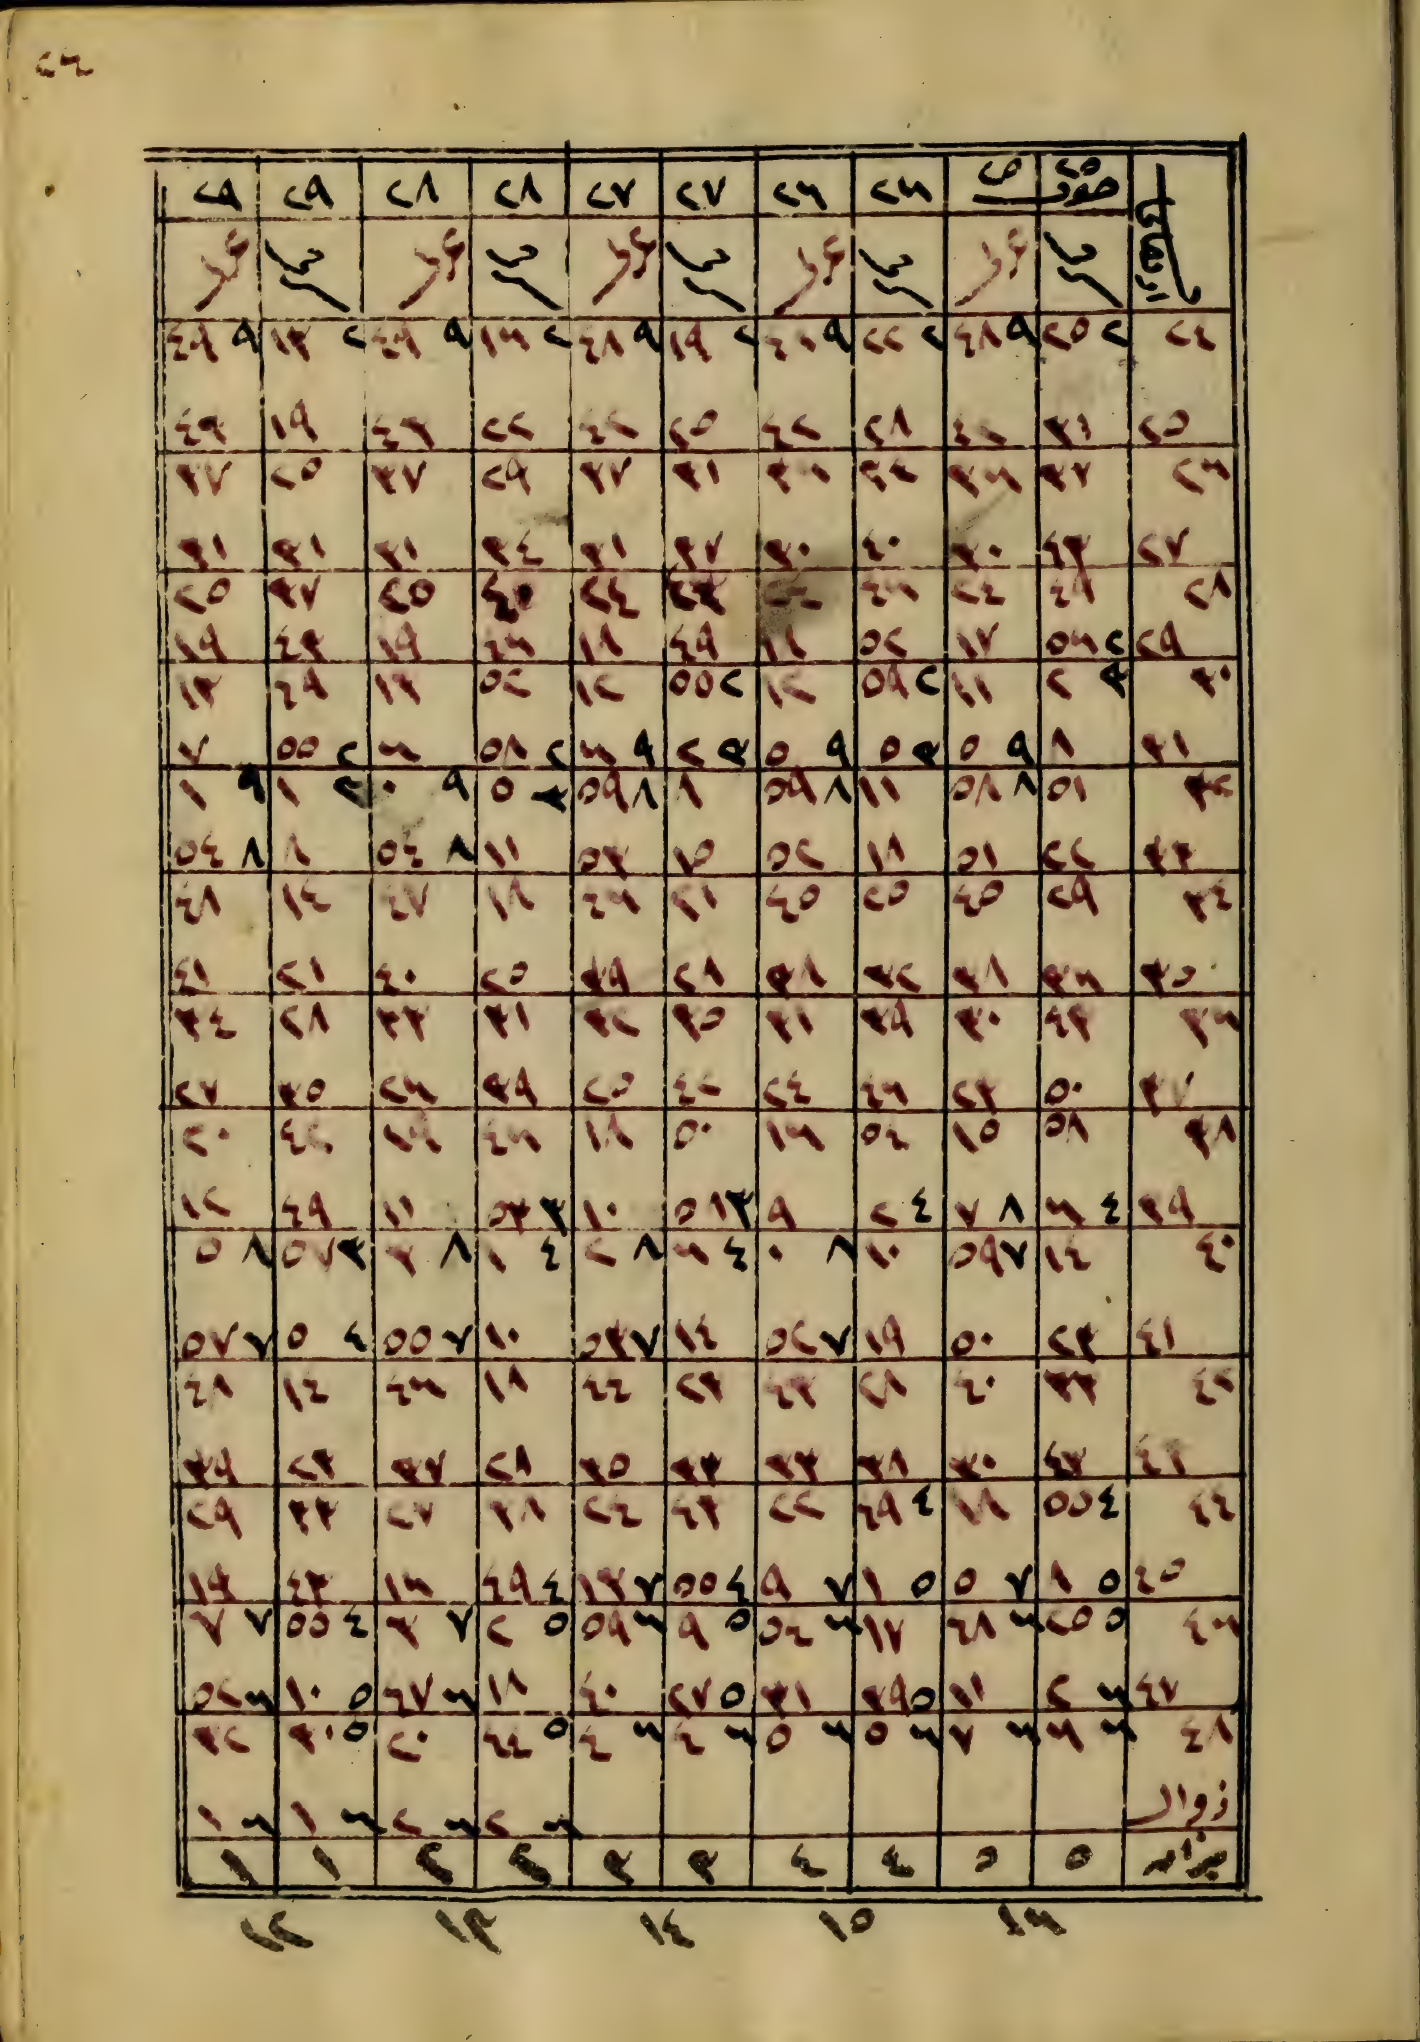 ٢٦
ارتفاع حوت ٢٥ ٢٥ ٢٦ ٢٦ ٢٧ ٢٧ ٢٨ ٢٨ ٢٩ ٢٩
٢٤ ٢ ٢٥ ٩ ٤٨ ٢ ٢٢ ٩ ٤٨ ٢ ١٩ ٩ ٤٨ ٢ ١٦ ٩ ٤٩ ٢ ١٣ ٩ ٤٩
٢٥ ٣١ ٤٢ ٢٨ ٤٢ ٢٥ ٤٢ ٢٢ ٤٣ ١٩ ٤٣
٢٦ ٣٧ ٣٦ ٣٤ ٣٦ ٣١ ٣٧ ٢٩ ٣٧ ٢٥ ٣٧
٢٧ ٤٣ ٣٠ ٤٠ ٣٠ ٣٧ ٣١ ٣٤ ٣١ ٣١ ٣١
٢٨ ٤٩ ٢٤ ٤٦ ٤٣ ٢٤ ٤٠ ٢٥ ٣٧ ٢٥
٢٩ ٢ ٥٦ ١٧ ٥٢ ١٨ ٤٩ ١٨ ٤٦ ١٩ ٤٣ ١٩
٣٠ ٣ ٢ ١١ ٢ ٥٩ ١٢ ٢ ٥٥ ١٢ ٥٢ ١٣ ٤٩ ١٣
٣١ ٨ ٩ ٥ ٣ ٥ ٩ ٥ ٣ ٢ ٩ ٦ ٢ ٥٨ ٦ ٢ ٥٥ ٧
٣٢ ٥١ ٨ ٥٨ ١١ ٨ ٥٩ ٨ ٨ ٥٩ ٣ ٥ ٩ ٠ ٣ ١ ٩ ١
٣٣ ٢٢ ٥١ ١٨ ٥٢ ١٥ ٥٣ ١١ ٨ ٥٤ ٨ ٨ ٥٤
٣٤ ٢٩ ٤٥ ٢٥ ٤٥ ٢١ ٤٦ ١٨ ٤٧ ١٤ ٤٨
٣٥ ٣٦ ٣٨ ٣٢ ٣٨ ٢٨ ٣٩ ٢٥ ٤٠ ٢١ ٤١
٣٦ ٤٣ ٣٠ ٣٩ ٣١ ٣٥ ٣٢ ٣١ ٣٣ ٢٨ ٣٤
٣٧ ٥٠ ٢٣ ٤٦ ٢٤ ٤٢ ٢٥ ٣٩ ٢٦ ٣٥ ٢٧
٣٨ ٥٨ ١٥ ٥٤ ١٦ ٥٠ ١٨ ٤٦ ١٩ ٤٢ ٢٠
٣٩ ٤ ٦ ٨ ٧ ٤ ٢ ٩ ٣ ٥٨ ١٠ ٣ ٥٣ ١١ ٤٩ ١٢
٤٠ ١٤ ٧ ٥٩ ١٠ ٨ ٠ ٤ ٦ ٨ ٢ ٤ ١ ٨ ٣ ٣ ٥٧ ٨ ٥
٤١ ٢٣ ٥٠ ١٩ ٧ ٥٢ ١٤ ٧ ٥٣ ١٠ ٧ ٥٥ ٤ ٥ ٧ ٥٧
٤٢ ٣٣ ٤٠ ٢٨ ٤٣ ٢٣ ٤٤ ١٨ ٤٦ ١٤ ٤٨
٤٣ ٤٣ ٣٠ ٣٨ ٣٣ ٣٣ ٣٥ ٢٨ ٣٧ ٢٣ ٣٩
٤٤ ٤ ٥٥ ١٨ ٤ ٤٩ ٢٢ ٤٣ ٢٤ ٣٨ ٢٧ ٣٣ ٢٩
٤٥ ٥ ٨ ٧ ٥ ٥ ١ ٧ ٩ ٤ ٥٥ ٧ ١٣ ٤ ٤٩ ١٦ ٤٣ ١٩
٤٦ ٥ ٢٥ ٦ ٤٨ ١٧ ٦ ٥٤ ٥ ٩ ٦ ٥٩ ٥ ٢ ٧ ٣ ٤ ٥٥ ٧ ٧
٤٧ ٦ ٢ ١١ ٥ ٣٩ ٣١ ٥ ٢٧ ٤٠ ١٨ ٦ ٤٧ ٥ ١٠ ٦ ٥٢
٤٨ ٦ ٦ ٦ ٧ ٦ ٥ ٦ ٥ ٦ ٤ ٦ ٤ ٥ ٤٤ ٢٠ ٥ ٣٠ ٣٢
زوال ٦ ٢ ٦ ٢ ٦ ١ ٦ ١
ميزان ٥ ٥ ٤ ٤ ٣ ٣ ٢ ٢ ١ ١
١٦ ١٥ ١٤ ١٣ ١٢